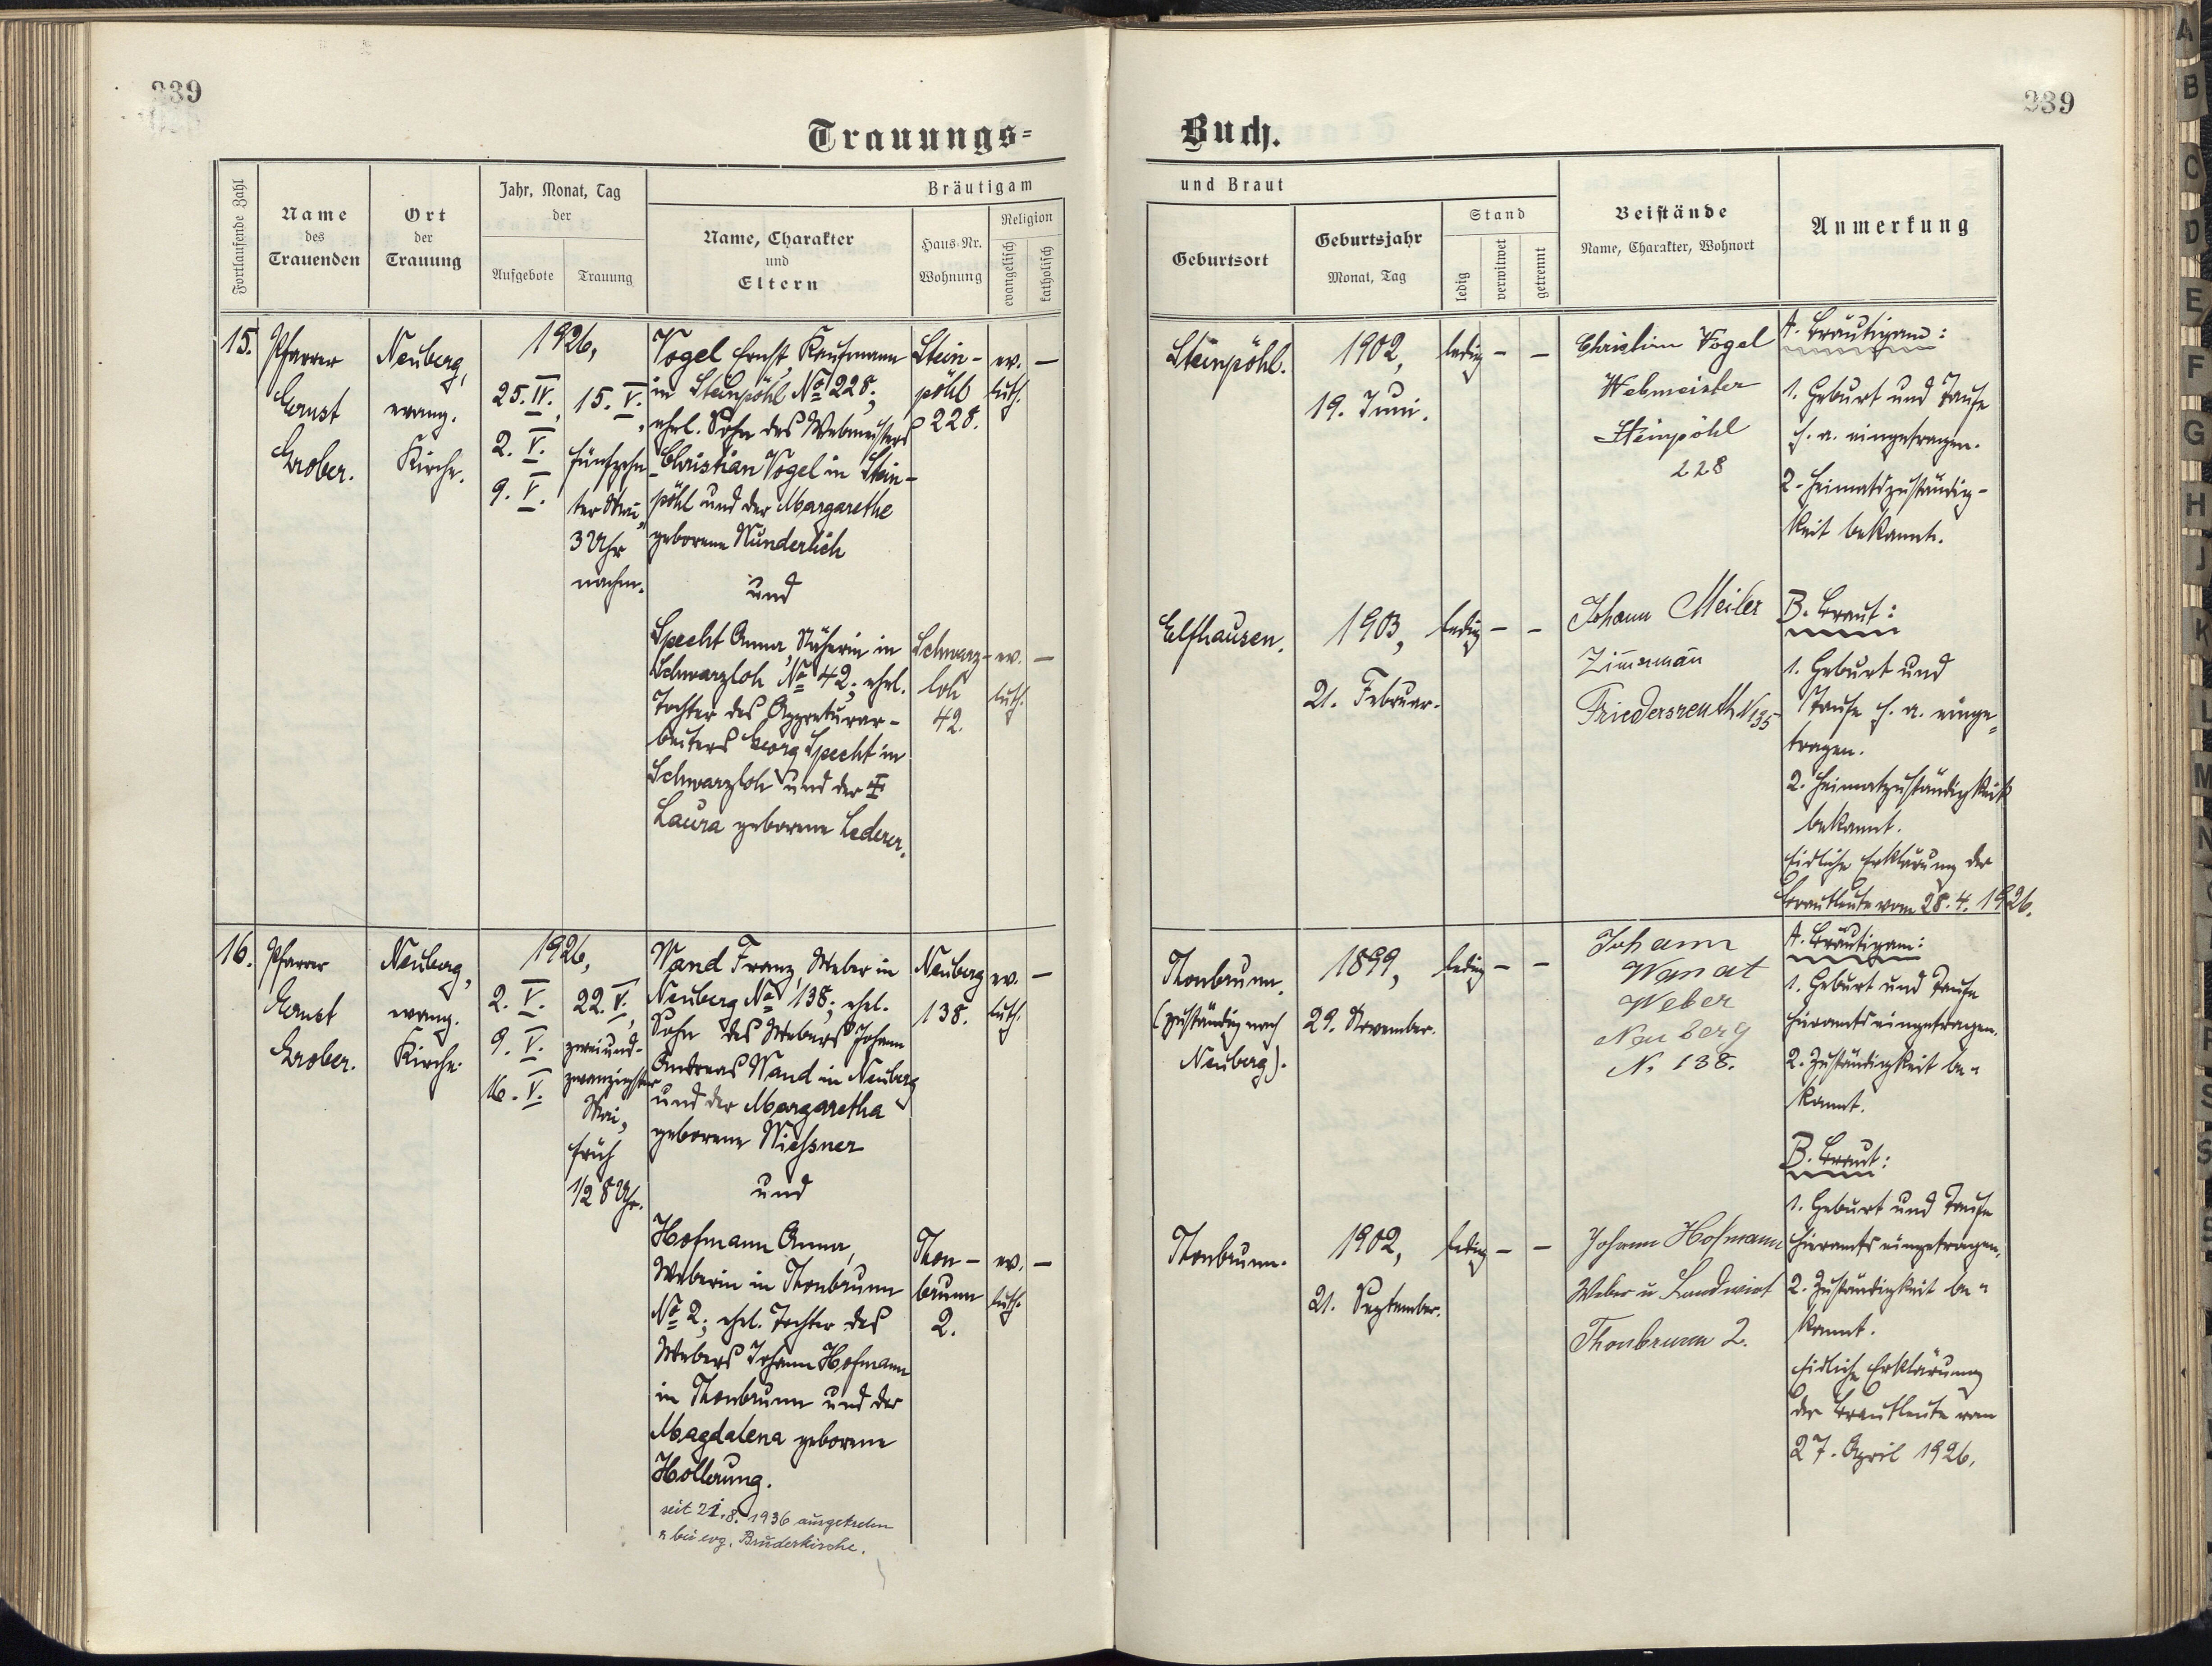 339
Trauungs=
Fortlaufende Zahl
Name
des
Trauenden
Ort
der
Trauung
Jahr, Monat, Tag
der
Aufgebote
Trauung
Bräutigam
Name, Charakter
und
Eltern
Haus-Nr.
Wohnung
Religion
evangelisch
katholisch
15.
Pfarrer
Ernst
Grober.
Neuberg,
evang.
Kirche.
1926,
25. IV.,
2. V.
9. V.
15. V.,
fünfzehn-
ter Mai,
3 Uhr
nachm.
Vogel Ernst, Kaufmann
in Steinpöhl No 228;
ehel. Sohn des Webmeisters
Christian Vogel in Stein-
pöhl und der Margarethe
geborene Wunderlich
und
Specht Anna, Näherin in
Schwarzloh No 42; ehel.
Tochter des Appreturar-
beiters Georg Specht in
Schwarzloh und der ‡
Laura geborene Lederer.
Stein-
pöhl
228.
ev.
luth.
—
Schwarz-
loh
42.
ev.
luth.
—
16.
Pfarrer
Ernst
Grober.
Neuberg,
evang.
Kirche.
1926,
2. V.
9. V.
16. V.
22. V.,
zweiund-
zwanzigster
Mai,
früh
1/2 8 Uhr.
Wand Franz, Weber in
Neuberg No 138; ehel.
Sohn des Webers Johann
Andreas Wand in Neuberg
und der Margaretha
geborene Wießner
und
Hofmann Anna,
Weberin in Thonbrunn
No 2; ehel. Tochter des
Webers Johann Hofmann
in Thonbrunn und der
Magdalena geborene
Hollerung.
seit 21.8.1936 ausgetreten
& bei evg. Brüderkirche.
Neuberg
138.
ev.
luth.
—
Thon-
brunn
2.
ev.
luth.
—
339
Buch.
und Braut
Geburtsort
Geburtsjahr
Monat, Tag
Stand
ledig
verwitwet
getrennt
Beistände
Name, Charakter, Wohnort
Anmerkung
Steinpöhl.
1902,
19. Juni.
ledig – –
Christian Vogel
Webmeister
Steinpöhl
228
A. Bräutigam:
1. Geburt und Taufe
h. a. eingetragen.
2. Heimatszuständig-
keit bekannt.
Elfhausen.
1903,
21. Februar.
ledig – –
Johann Meiler
Zimmermann
Friedersreuth N 35
B. Braut:
1. Geburt und
Taufe h. a. einge=
tragen.
2. Heimatzuständigkeit
bekannt.
Eidliche Erklärung der
Brautleute vom 28. 4. 1926.
Thonbrunn.
(zuständig nach
Neuberg).
1899,
29. November.
ledig – –
Johann
Wanat
Weber
Neuberg
N. 138.
A. Bräutigam:
1. Geburt und Taufe
hieramts eingetragen.
2. Zuständigkeit be=
kannt.
B. Braut:
1. Geburt und Taufe
hieramts eingetragen.
2. Zuständigkeit be=
kannt.
Eidliche Erklärung
der Brautleute vom
27. April 1926.
Thonbrunn.
1902,
21. September.
ledig – –
Johann Hofmann
Weber u Landwirt
Thonbrunn 2.
A
B
C
D
E
F
G
H
J
K
L
M
N